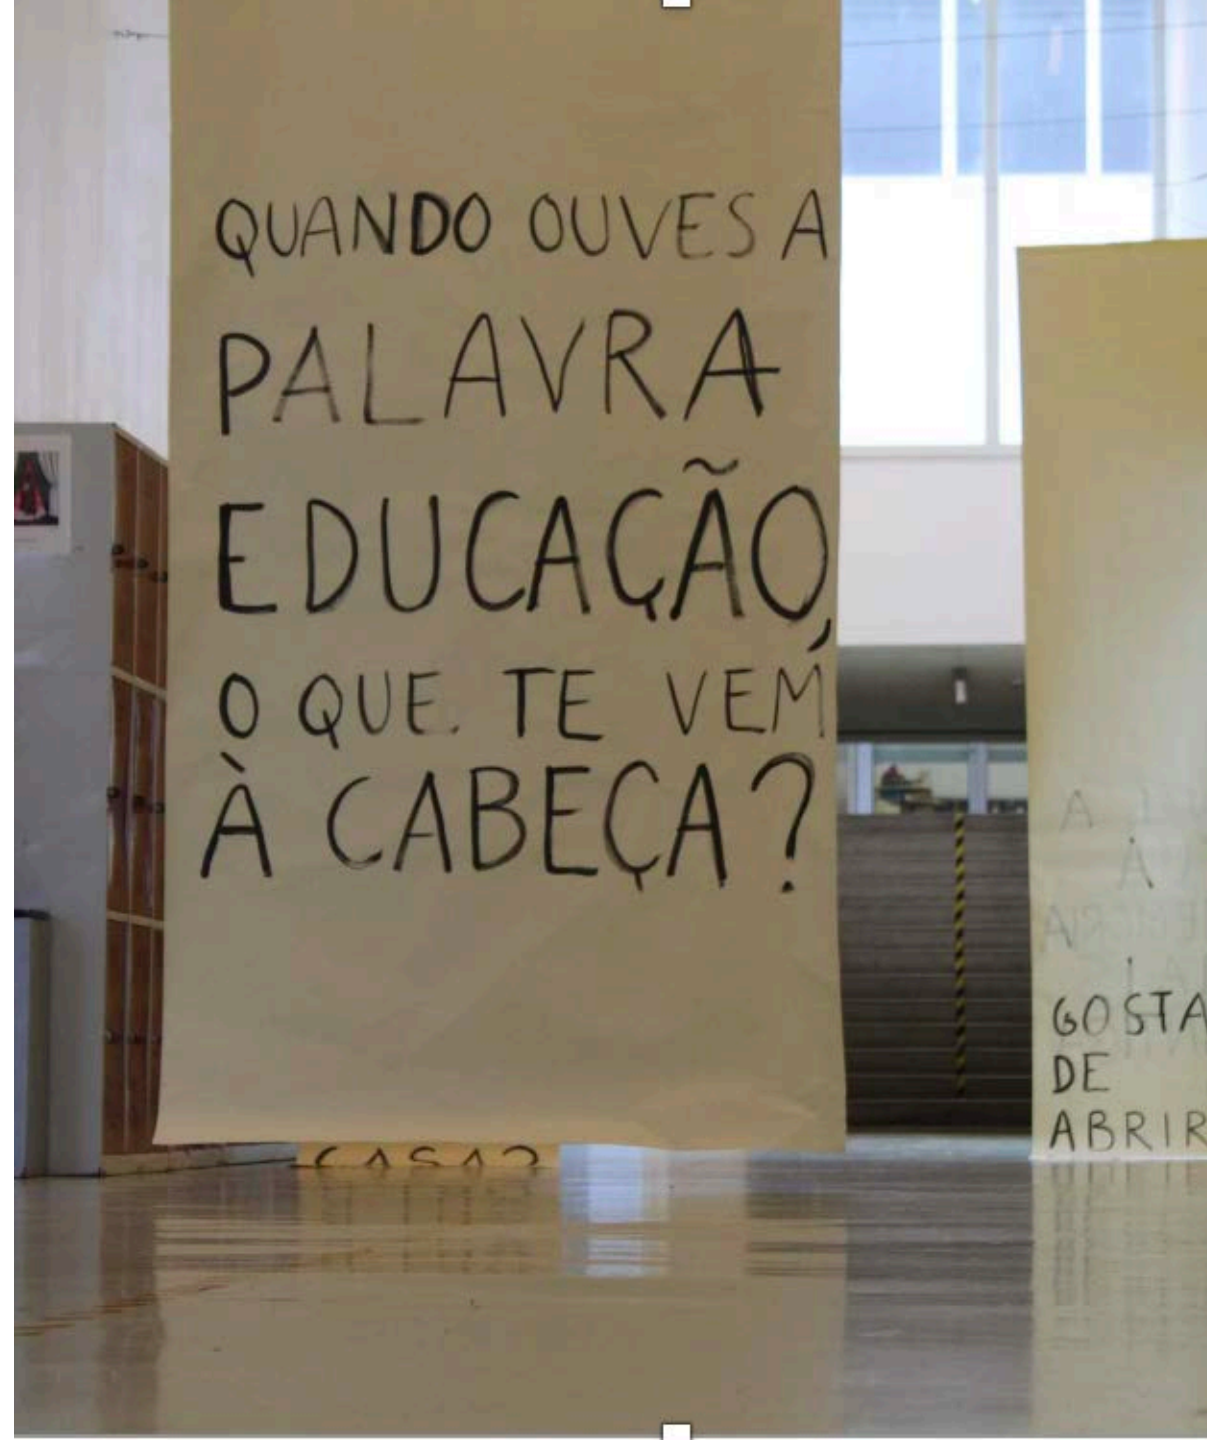 QUANDO OUVES A
PALAVRA
EDUCAÇÃO,
O QUE TE VEM
À CABEÇA?
CASA?
GOSTA
DE
ABRIR